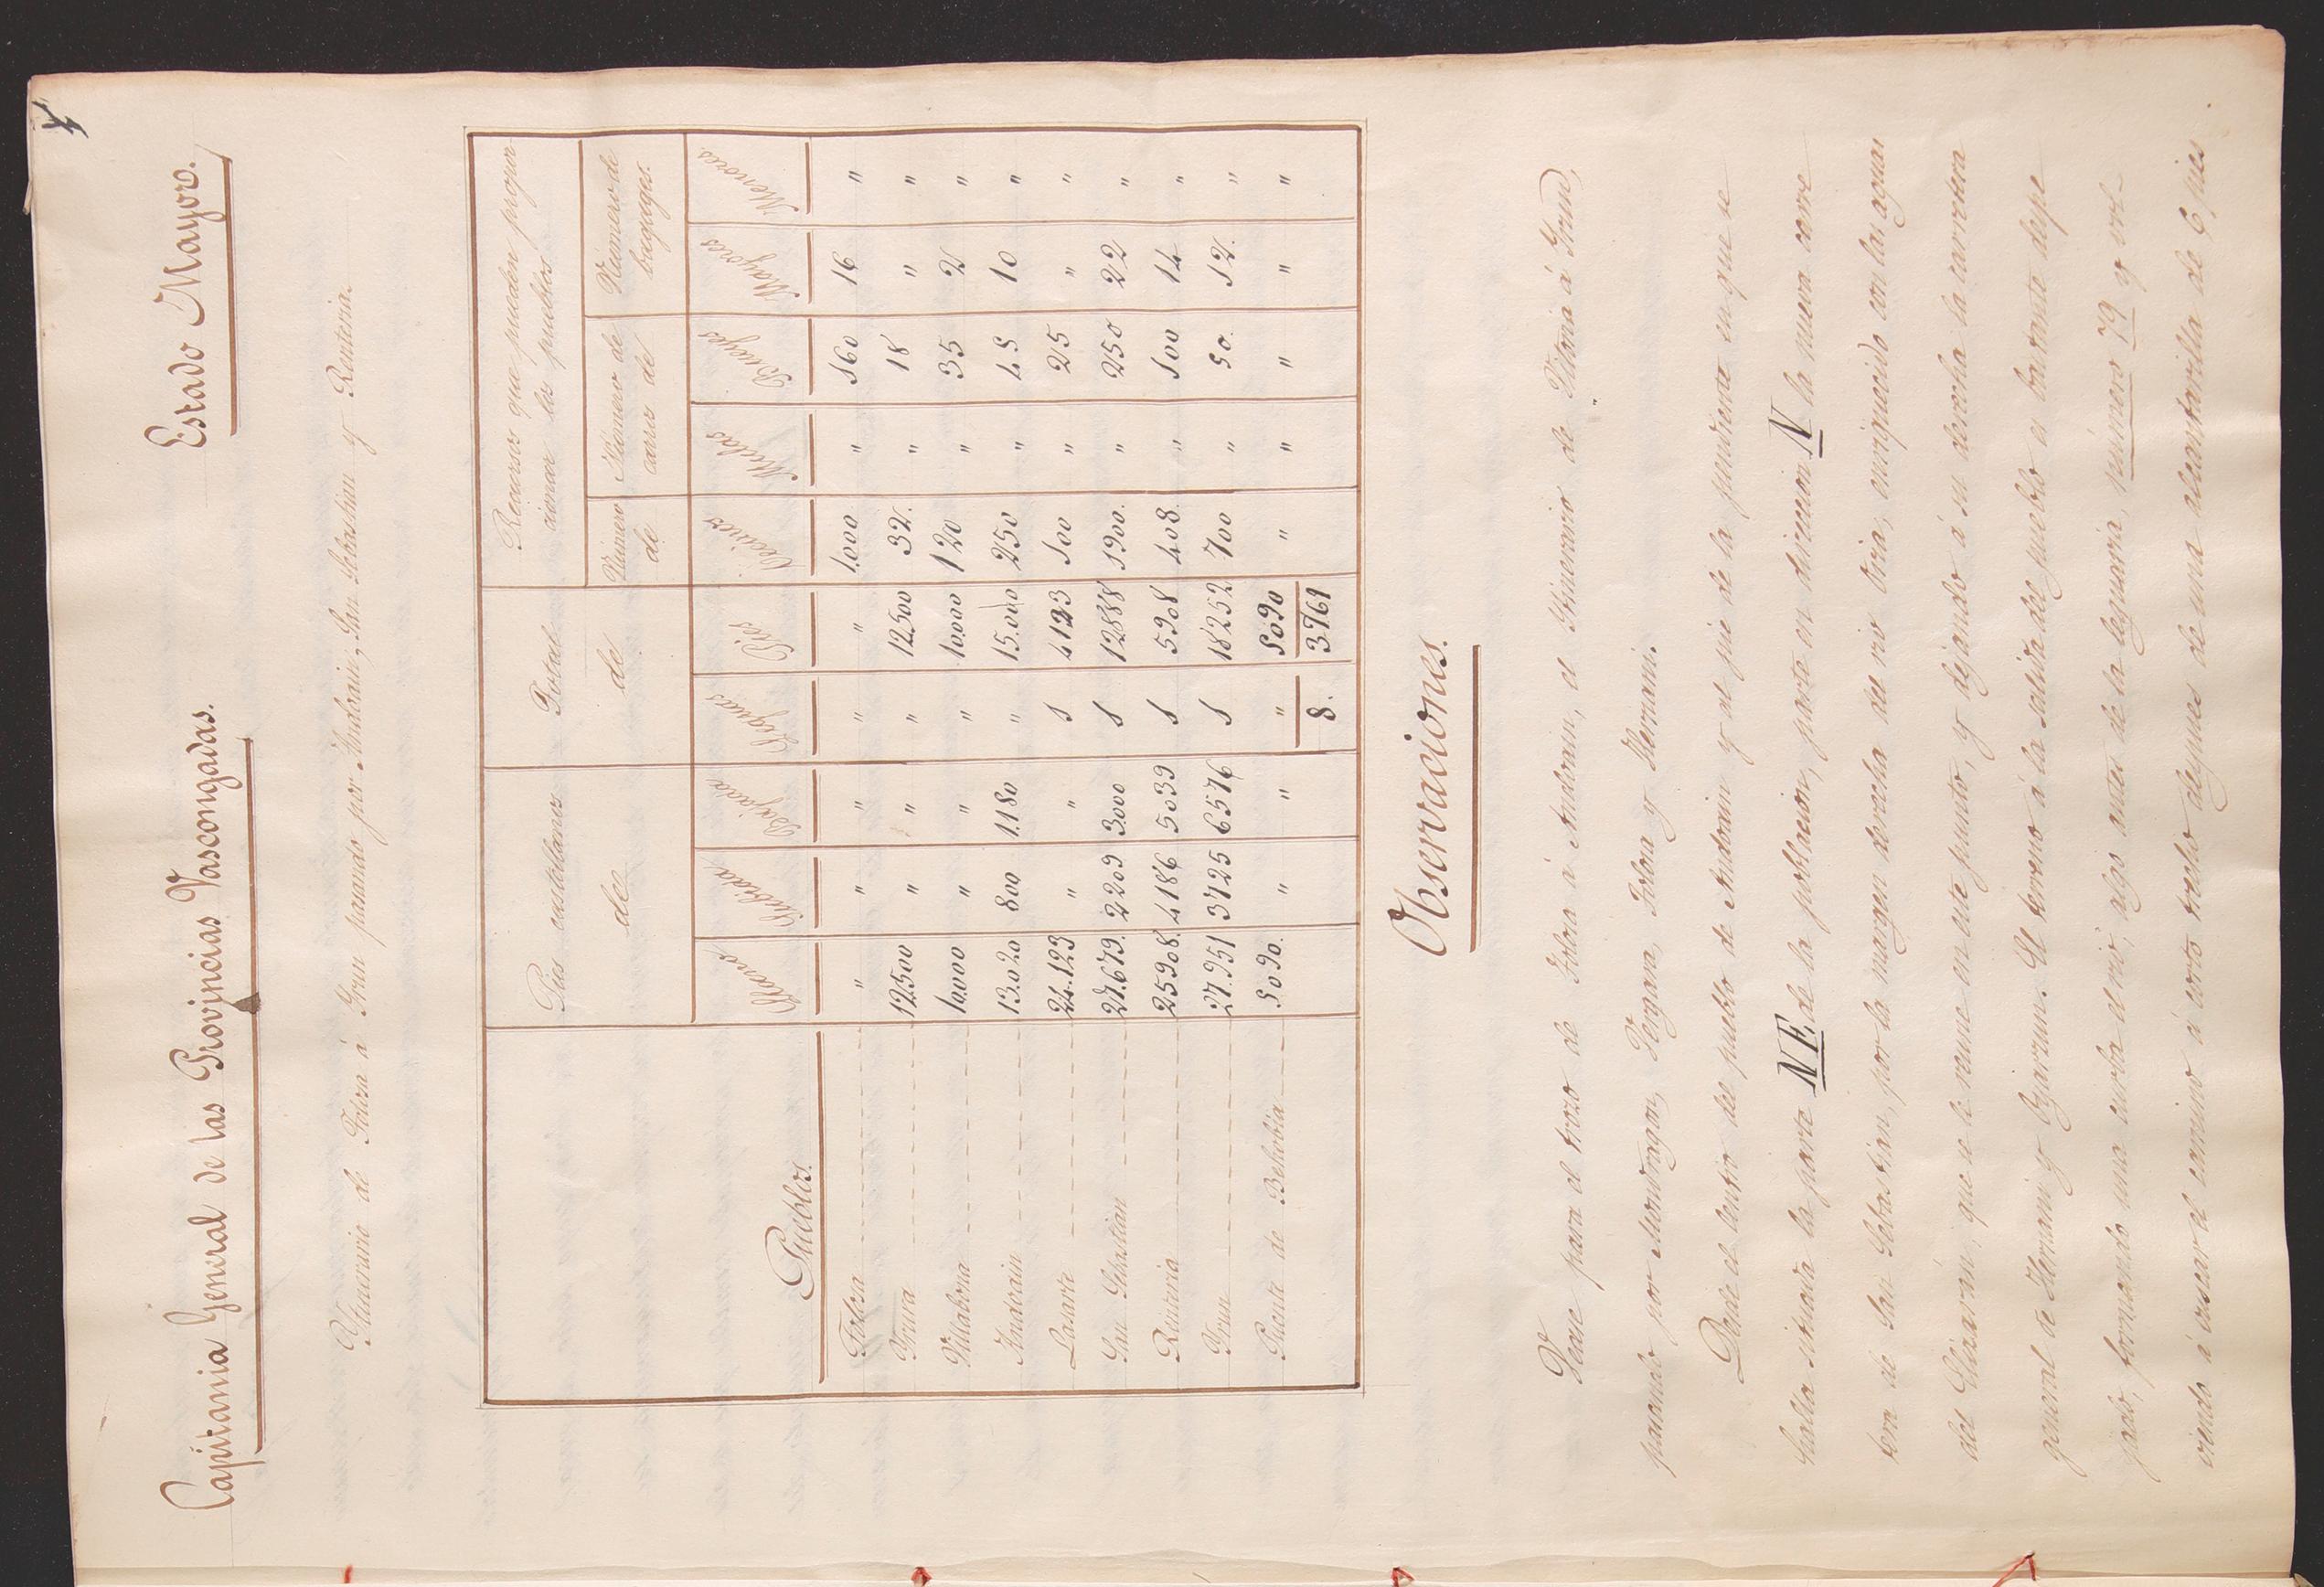 4
Capitania General de las Provincias Vascongadas. Estado Mayor.
Itinerario de Tolosa á Irun pasando por Andoain, San Sebastian y Renteria.
Pueblos. Pies castellanos de Total de Recursos que pueden propor-
cionar los pueblos
Número de Número de carros de Número de bagages.
Llano Subida Bajada Leguas Pies Vecinos Mulas Bueyes Mayores Menores
Tolosa " " " " " 1.000 " 160 16 "
Irura 12500 " " " 12500 32. " 18 " "
Villabona 10.000 " " " 10.000 120 " 35 2 "
Andoain 13.020 800 1.180 " 15.000 250 " 45 10 "
Lasarte 24.123 " " 1 4123 100 " 25 " "
San Sebastian 27.679. 2209 3.000 1 12888 1900. " 250 22 "
Renteria 25908. 4186 5039 1 5908 408. " 100 14 "
Irun 27.951 3725 6576 1 18252 700 " 50. 12. "
Puente de Behobia 5090. " " " 5090 " " " " "
8. 3761
Observaciones.
Vease para el trozo de Tolosa á Andoain, el Itinerario de Vitoria á Irun,
pasando por Mondragon, Vergara, Tolosa y Hernani.
Desde el centro del pueblo de Andoain y al pie de la pendiente en que se
halla situada la parte NE. de la poblacion, parte en direccion N la nueva carre
tera de San Sebastian, por la margen derecha del rio Oria, enriquecido con las aguas
del Leizarán, que se le reune en este punto, y dejando á su derecha la carretera
general de Hernani y Oyarzun. El terreno á la salida del pueblo es bastante despe
jado, formando una curba el rio, algo antes de la leguaria, número 79 y vol-
viendo á buscar el camino á corto trecho despues de una alcantarilla de 6 pies